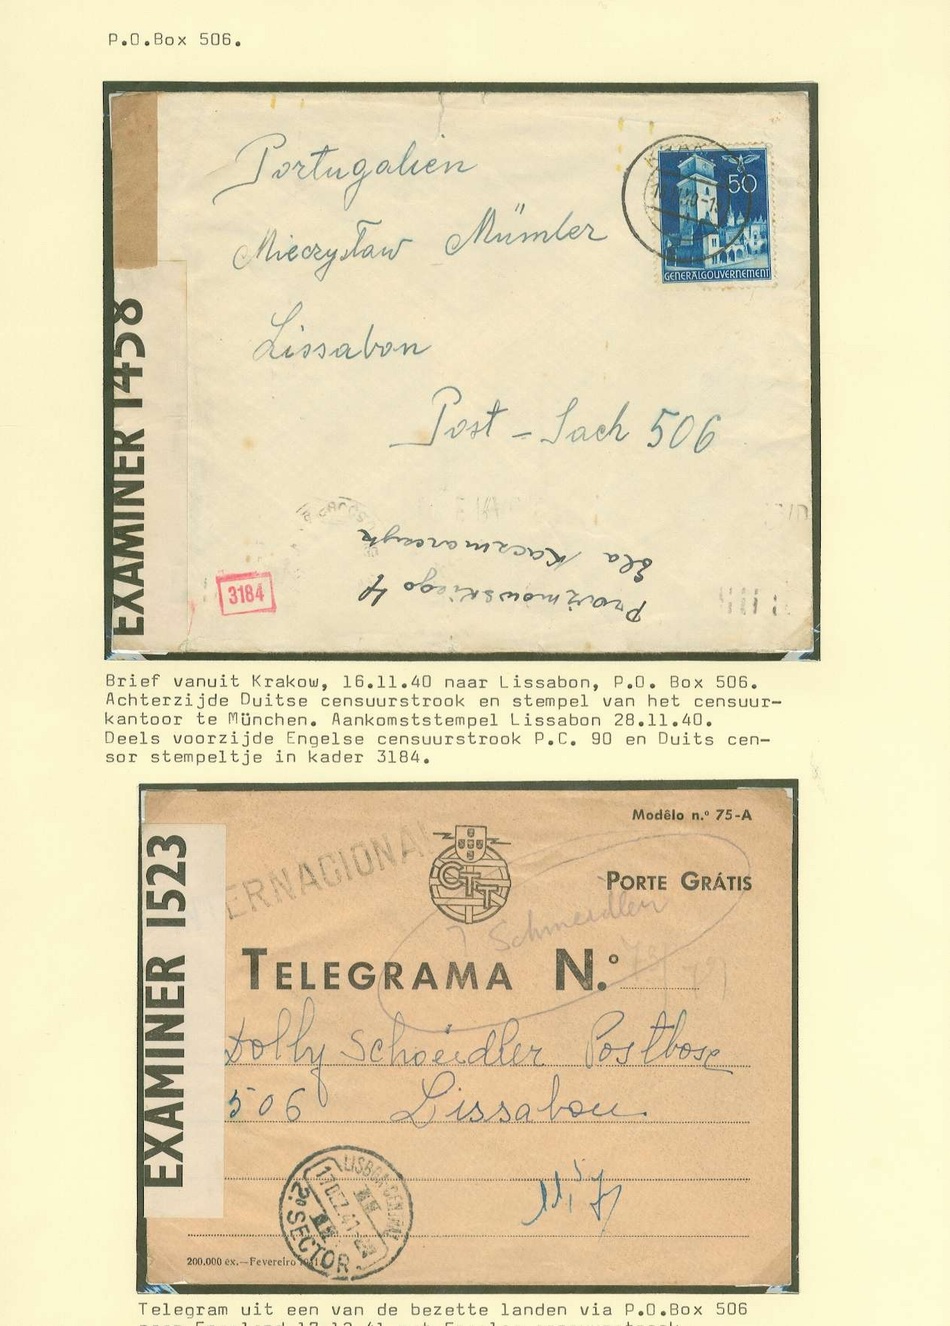 P.O.Box 506.
Portugalien
50
GENERALGOUVERNEMENT
Mieczysław Mümler
Lissabon
Post - Sach 506
EXAMINER 1458
Ela Kaczmarczyk
3184
Brief vanuit Krakow, 16.11.40 naar Lissabon, P.O. Box 506.
Achterzijde Duitse censuurstrook en stempel van het censuur-
kantoor te München. Aankomststempel Lissabon 28.11.40.
Deels voorzijde Engelse censuurstrook P.C. 90 en Duits cen-
sor stempeltje in kader 3184.
Modêlo n.º 75-A
ERNACIONA
CTT
PORTE GRÁTIS
EXAMINER 1523
TELEGRAMA N.º
Dolly Schoeidler Postboxe
506 Lissabon.
LISBOA CENTRAL
17 DEZ. 41
2º SECTOR
200.000 ex.—Fevereiro
Telegram uit een van de bezette landen via P.O.Box 506